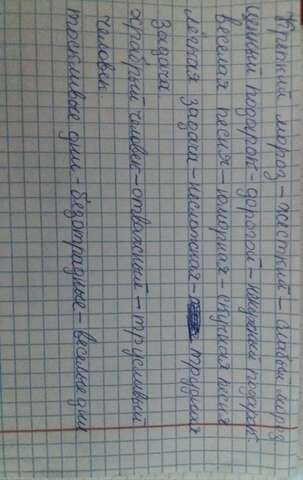 Крепкий мороз - жесткий - слабый мороз
Ценный подарок - дорогой - ненужный подарок.
веселая песня - юморная - скучная песня
лёгкая задача - несложная - трудная
задача.
храбрый человек - отважный - трусливый
человек.
тоскливые дни - безотрадные - веселые дни